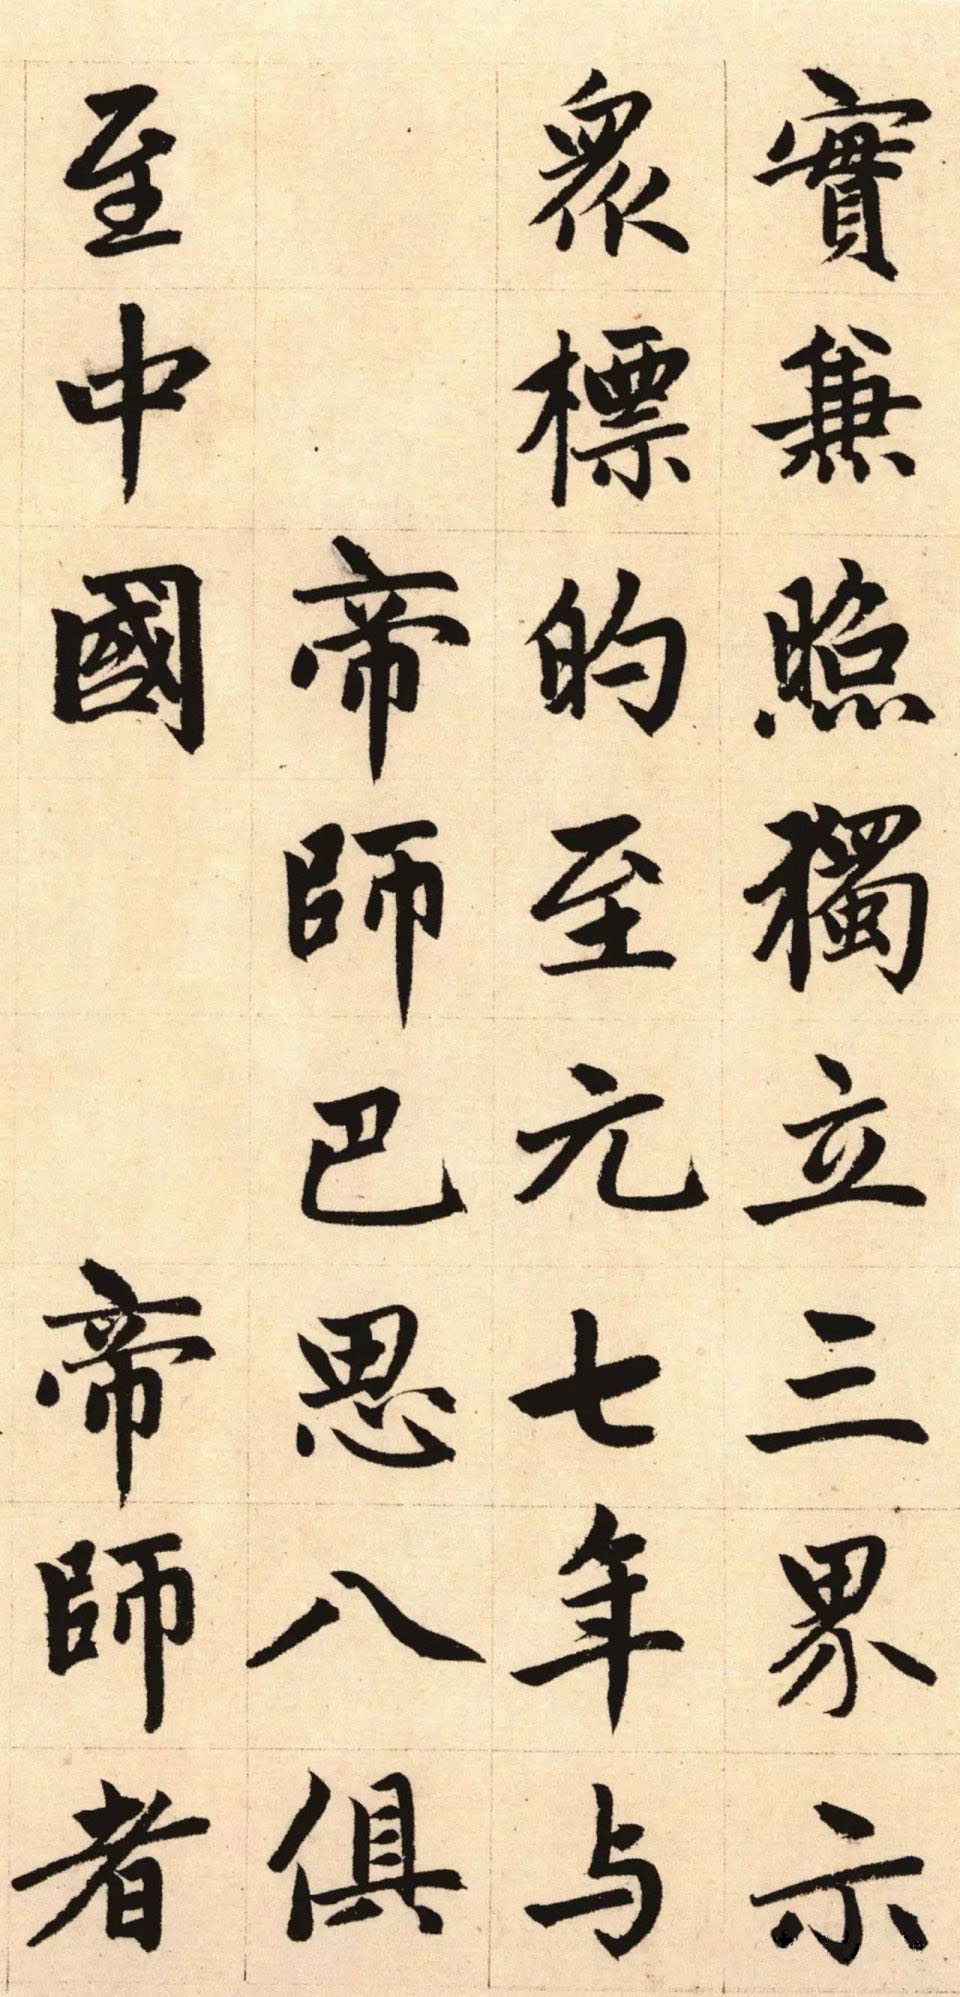 實兼照獨立三界示
眾標的至元七年与
帝師巴思八俱
至中國 帝師者